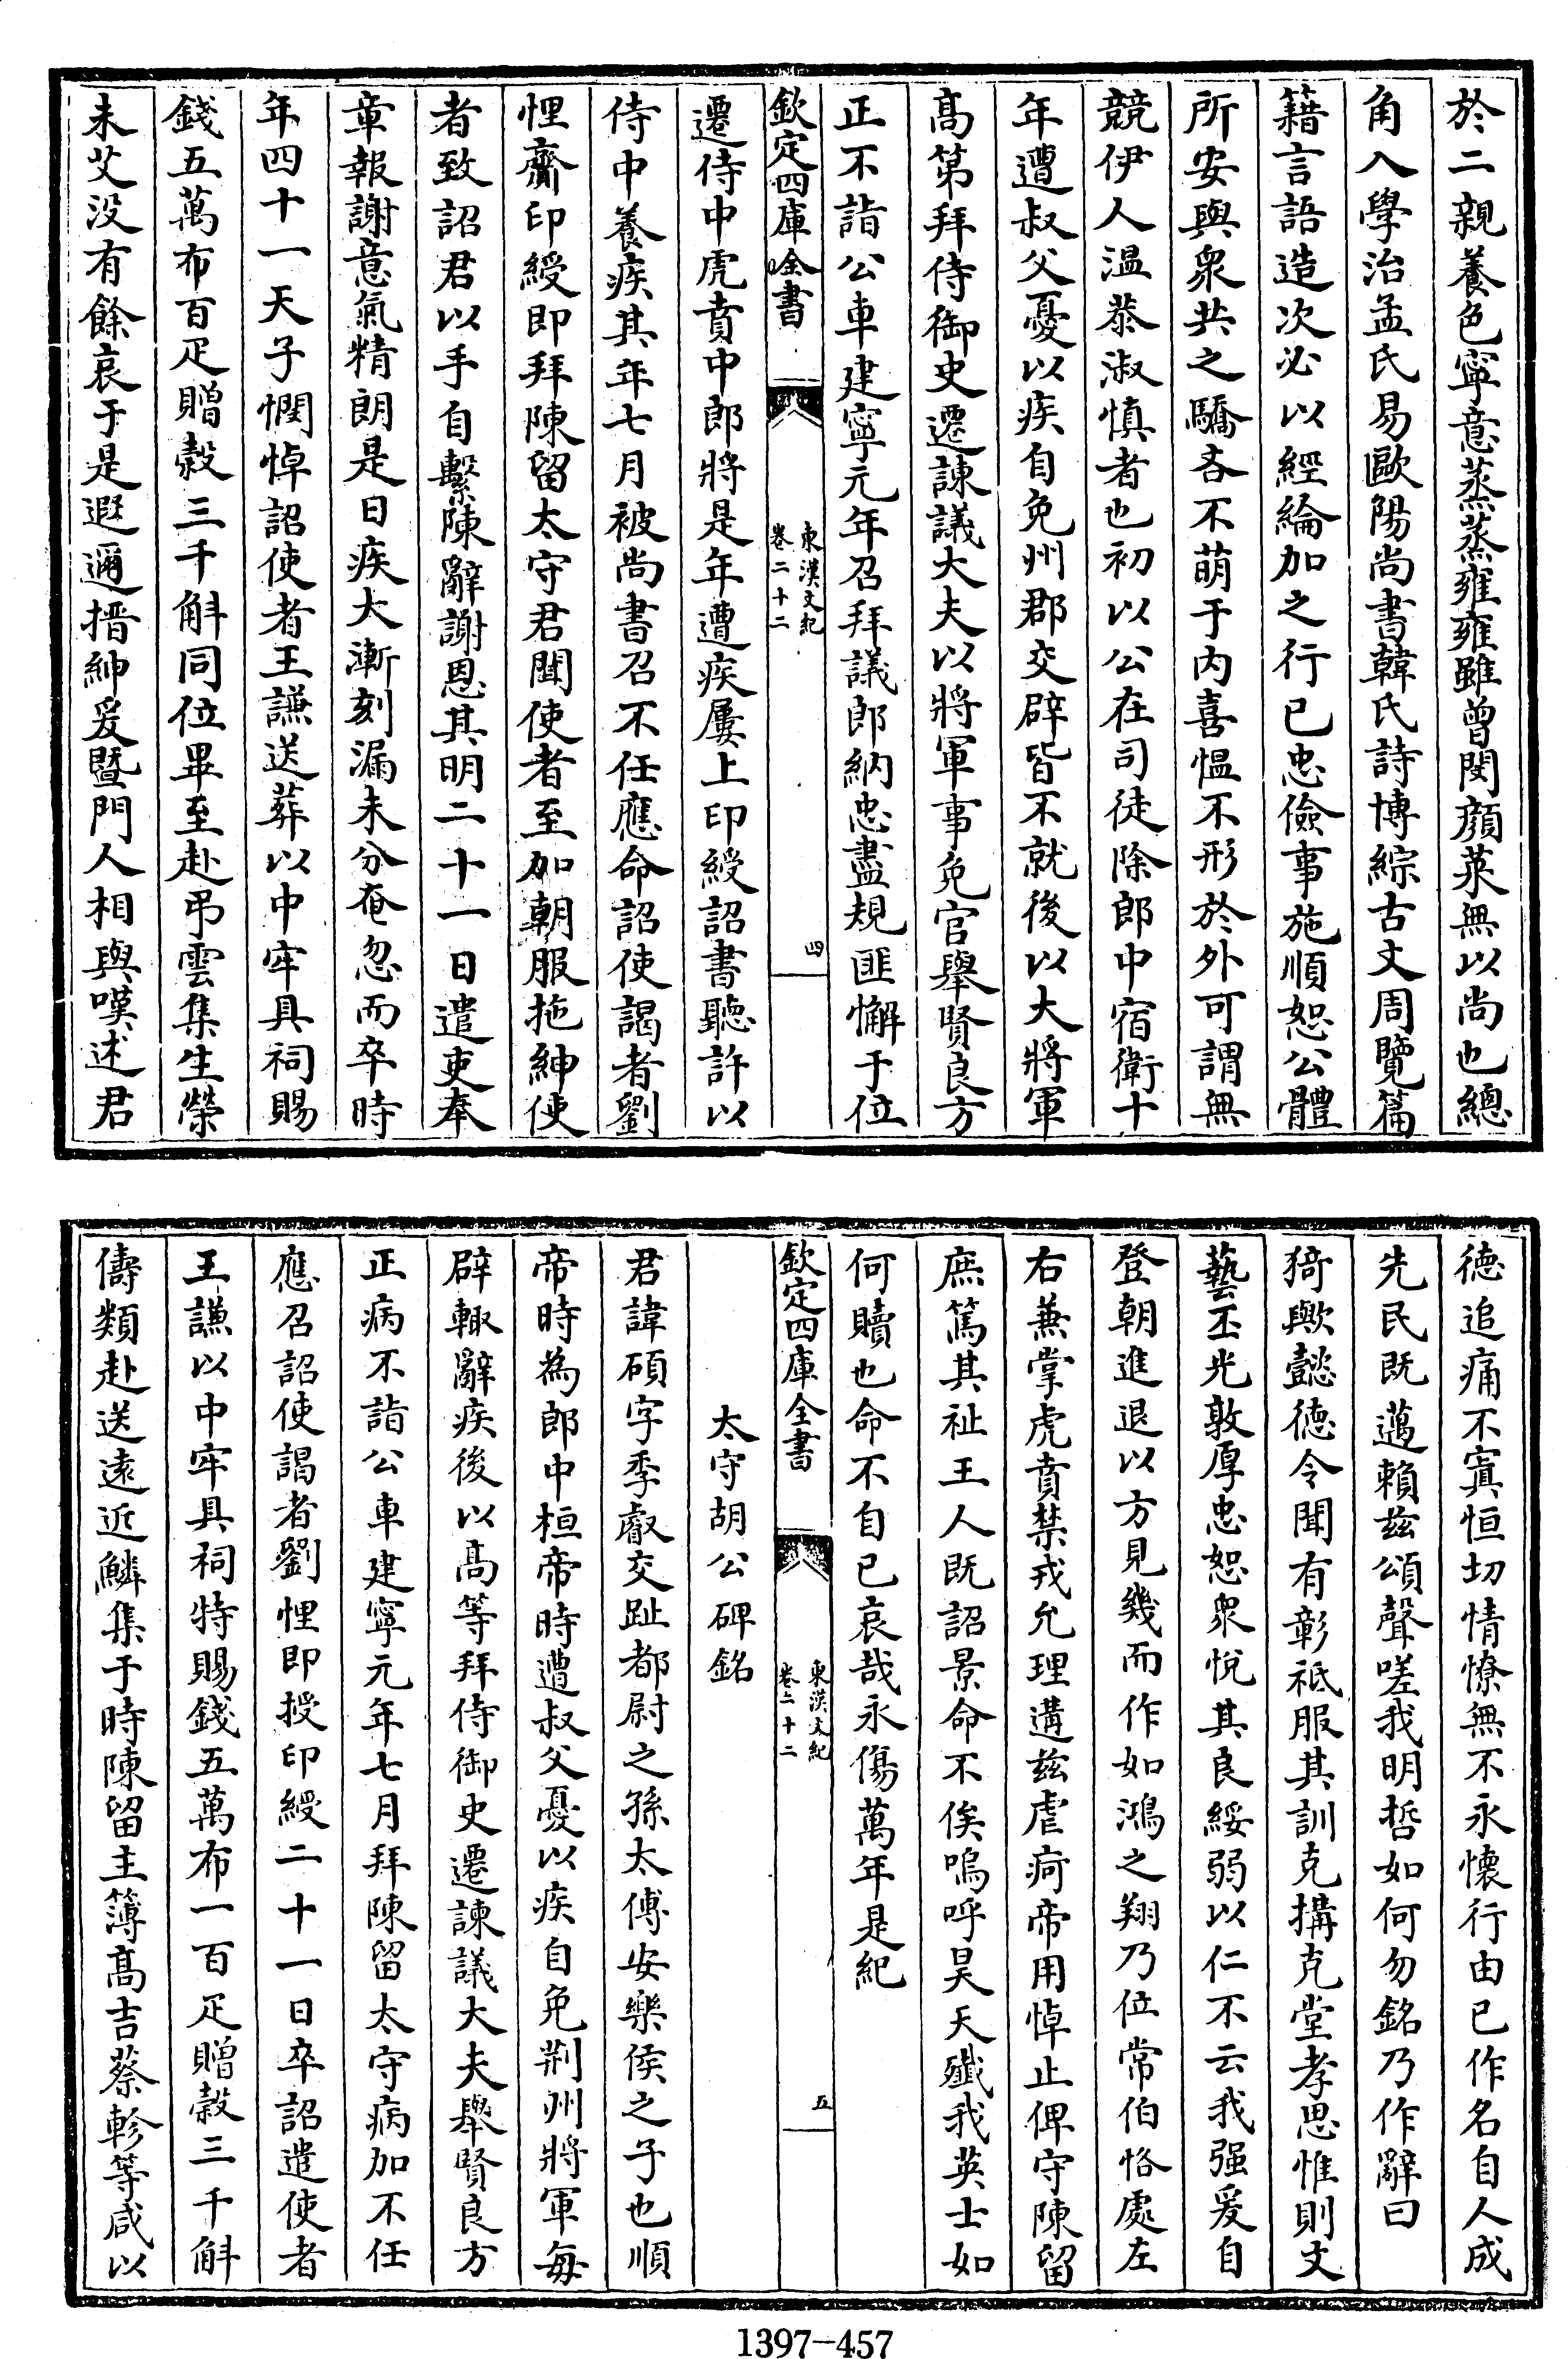 於二親養色寧意蒸蒸雍雍雖曾閔顔萊無以尚也總
角入學治孟氏易歐陽尚書韓氏詩博綜古文周覽篇
籍言語造次必以經綸加之行已忠儉事施順恕公體
所安與衆共之驕吝不萌于内喜愠不形於外可謂無
競伊人温恭淑慎者也初以公在司徒除郎中宿衛十
年遭叔父憂以疾自免州郡交辟皆不就後以大將軍
髙第拜侍御史遷諫議大夫以將軍事免官舉賢良方
正不詣公車建寧元年召拜議郎納忠盡規匪懈于位
欽定四庫全書
東漢文紀
卷二十二
四
遷侍中虎賁中郎將是年遭疾屢上印綬詔書聽許以
侍中養疾其年七月被尚書召不任應命詔使謁者劉
悝齎印綬即拜陳留太守君聞使者至加朝服拖紳使
者致詔君以手自繫陳辭謝恩其明二十一日遣吏奉
章報謝意氣精朗是日疾大漸刻漏未分奄忽而卒時
年四十一天子憫悼詔使者王謙送葬以中牢具祠賜
錢五萬布百疋贈穀三千斛同位畢至赴弔雲集生榮
未艾没有餘哀于是遐邇搢紳爰暨門人相與嘆述君
德追痛不寘恒切情憀無不永懷行由已作名自人成
先民既邁賴兹頌聲嗟我明哲如何勿銘乃作辭曰
猗歟懿德令聞有彰祗服其訓克搆克堂孝思惟則文
藝丕光敦厚忠恕衆悅其良綏弱以仁不云我强爰自
登朝進退以方見幾而作如鴻之翔乃位常伯恪處左
右兼掌虎賁禁戎允理遘兹虐痾帝用悼止俾守陳留
庶篤其祉王人既詔景命不俟嗚呼昊天殱我英士如
何贖也命不自已哀哉永傷萬年是紀
欽定四庫全書
東漢文紀
卷二十二
五
太守胡公碑銘
君諱碩字季叡交趾都尉之孫太傅安樂侯之子也順
帝時為郎中桓帝時遭叔父憂以疾自免荆州將軍毎
辟輙辭疾後以髙等拜侍御史遷諫議大夫舉賢良方
正病不詣公車建寧元年七月拜陳留太守病加不任
應召詔使謁者劉悝即授印綬二十一日卒詔遣使者
王謙以中牢具祠特賜錢五萬布一百疋贈穀三千斛
儔類赴送遠近鱗集于時陳留主簿髙吉蔡軫等咸以
1397-457